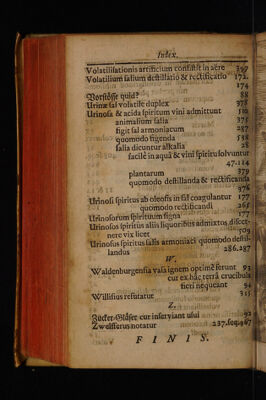 Index.
Volatilisationis artificium consistit in aëre 397
Volatilium salium destillatio & rectificatio 172.
174
Vorstösse quid? 88
Urinæ sal volatile duplex 378
Urinosa & acida spiritum vini admittunt 510
animalium salia 375
figit sal armoniacum 287
quomodo figenda 538
salia dicuntur alkalia 28
facilè in aquâ & vini spiritu solvuntur
47.114
plantarum 379
quomodo destillanda & rectificanda
376
Urinosi spiritus ab oleosis in sal coagulantur 177
quomodo rectificandi 265
Urinosorum spirituum signa 177
Urinosus spiritus aliis liquoribus admixtos discer-
nere vix licet 509
Urinosus spiritus salis armoniaci quomodo destil-
landus 286.287
W.
Waldenburgensia vasa ignem optimè ferunt 93
cur ex hâc terrâ crucibula
fieri nequeant 94
Willisius refutatur 315
Z.
Zucker-Gläser cui inserviant usui 92
Zwelfferus notatur 237.seq.467
FINIS.